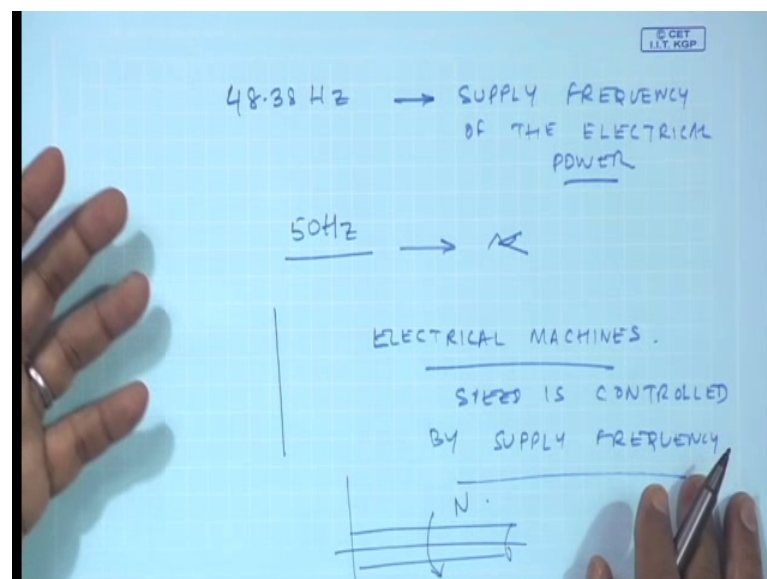 © CET
I.I.T. KGP
48.38 HZ → SUPPLY FREQUENCY
OF THE ELECTRICAL
POWER
50HZ →
ELECTRICAL MACHINES.
SPEED IS CONTROLLED
BY SUPPLY FREQUENCY
N.